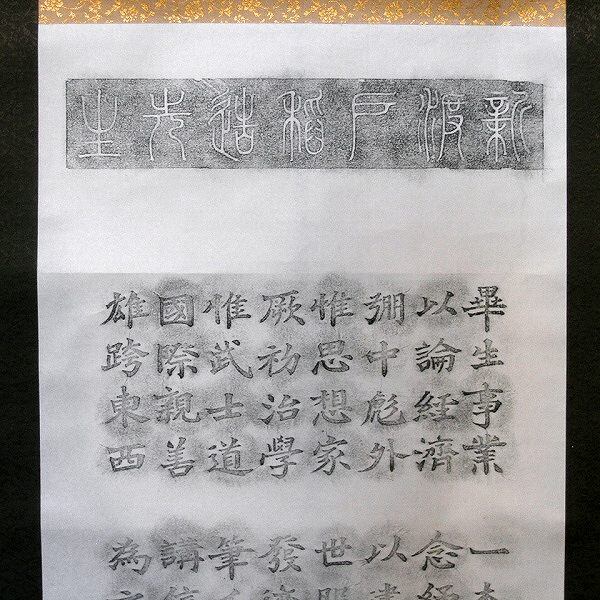 新渡戶稻造先生
畢生事業一
以論經濟念
弸中彪外以
惟思想家世
厥初治學發
惟武士道筆
國際親善講
雄跨東西為